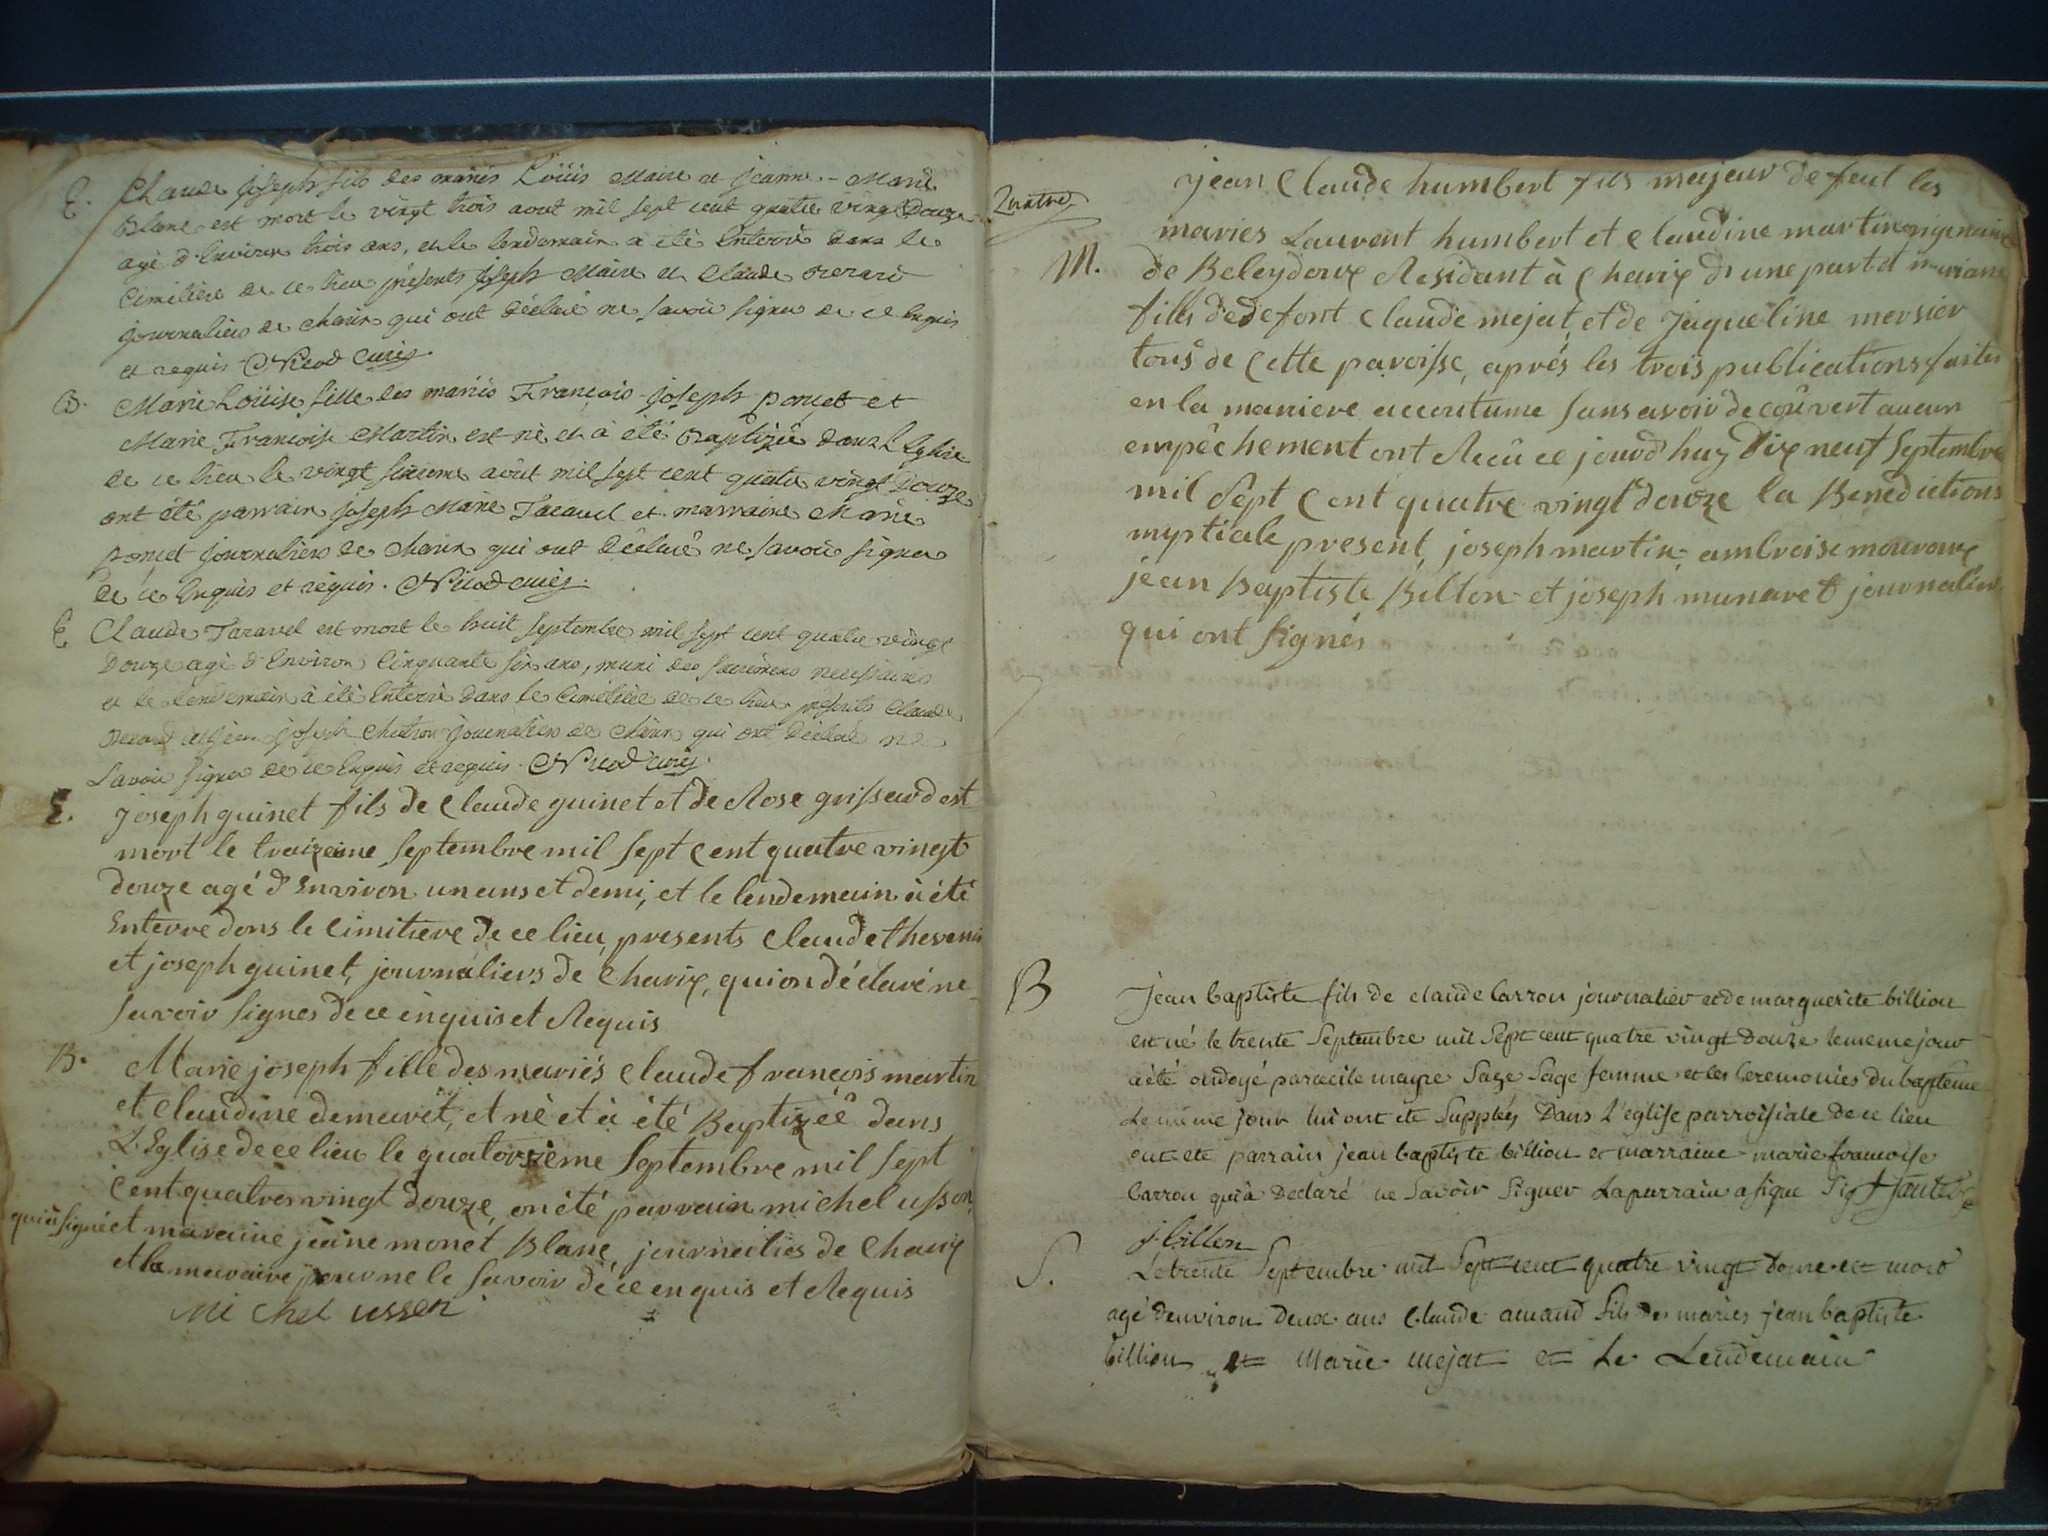 E. Claude joseph fils des mariés Loüis Maire et jeanne - Marie
Blanc est mort le vingt trois aout mil sept cent quatre vingt Douze
agé d'Environ trois ans, et le lendemain a été Enterré dans le
Cimitiere de ce lieu présents joseph Maire et Claude
journaliers de charix qui ont déclaré ne savoir signer de ce Enquis
et requis. Nicod curé.
B. Marie Loüise fille des mariés François joseph poncet et
Marie Francoise Martin est né et à été Baptizée dans L'Eglise
de ce lieu le vingt sixieme aôut mil sept cent quatre vingt Douze
ont été parrain joseph Marie Taravel et marraine Marie
poncet journaliers de charix qui ont déclaré ne savoir signer
de ce Enquis et réquis. Nicod curé.
E. Claude Taravel est mort le huit septembre mil sept cent quatre vingt
Douze agé d'Environ Cinquante six ans, muni des sacremens necessaires
et le lendemain à été Enterré dans le Cimitiere de ce lieu présents Claude
et jean joseph journaliers de charix qui ont déclaré ne
savoir signer de ce Enquis et requis. Nicod curé.
E. joseph guinet fils de claude guinet et de Rose grissard est
mort le traizeime septembre mil sept cent quatre vingt
douze agé d'Environ un ans et demi, et le lendemain à été
Enterre dans le cimitiere de ce lieu, presents claude thevenin
et joseph guinet, journaliers de Charix, qui on déclaré ne
savoir signes de ce enquis et Requis
B. Marie joseph fille des mariés claude francois martin
et claudine demaret, et né et à été Baptizéé dans
L'Eglise de ce lieu le quatorzième septembre mil sept
Cent quatres vingt douze, on été parrain michel usson,
qui à signé et maraine jéane monet Blanc, journailies de Charix
et la maraine pour ne le savoir de ce enquis et Requis
Mi chel ussen
Quatre
jean Claude humbert fils majeur de feut les
maries Laurent humbert et claudine martin originaire
M. de Beleydoux Residant à Charix d'une part et mariane
fille de defont claude mejat, et de jaqueline mersier
tous de cette paroisse, aprés les trois publications faites
en la maniere accoutume sans avoir decoûvert aucun
empêchement ont Recû ce jourd'huy dix neuf septembre
mil sept cent quatre vingt douze la Benedictions
myptiale present, joseph martin, ambroise
jean Baptiste Billon et joseph munaret journalier
qui ont signés
B Jean baptiste fils de claude Carron journalier et de marguerite billion
est né le trente Septembre mil Sept cent quatre vingt Douze le meme jour
a été ondoyé par Sage femme et les Ceremonies du bapteme
le même jour lui ont eté Suppléés Dans L'eglise parroissiale de ce lieu
ont eté parrain jean baptiste billion et marraine marie francoise
Carron qui à Declaré ne Savoir Signer Laparrain a signe
j billon
S. Le trente Septembre mil Sept cent quatre vingt douze est mort
agé d'environ Deux ans Claude amand fils des mariés jean baptiste
billion et Marie mejat et Le Lendemain